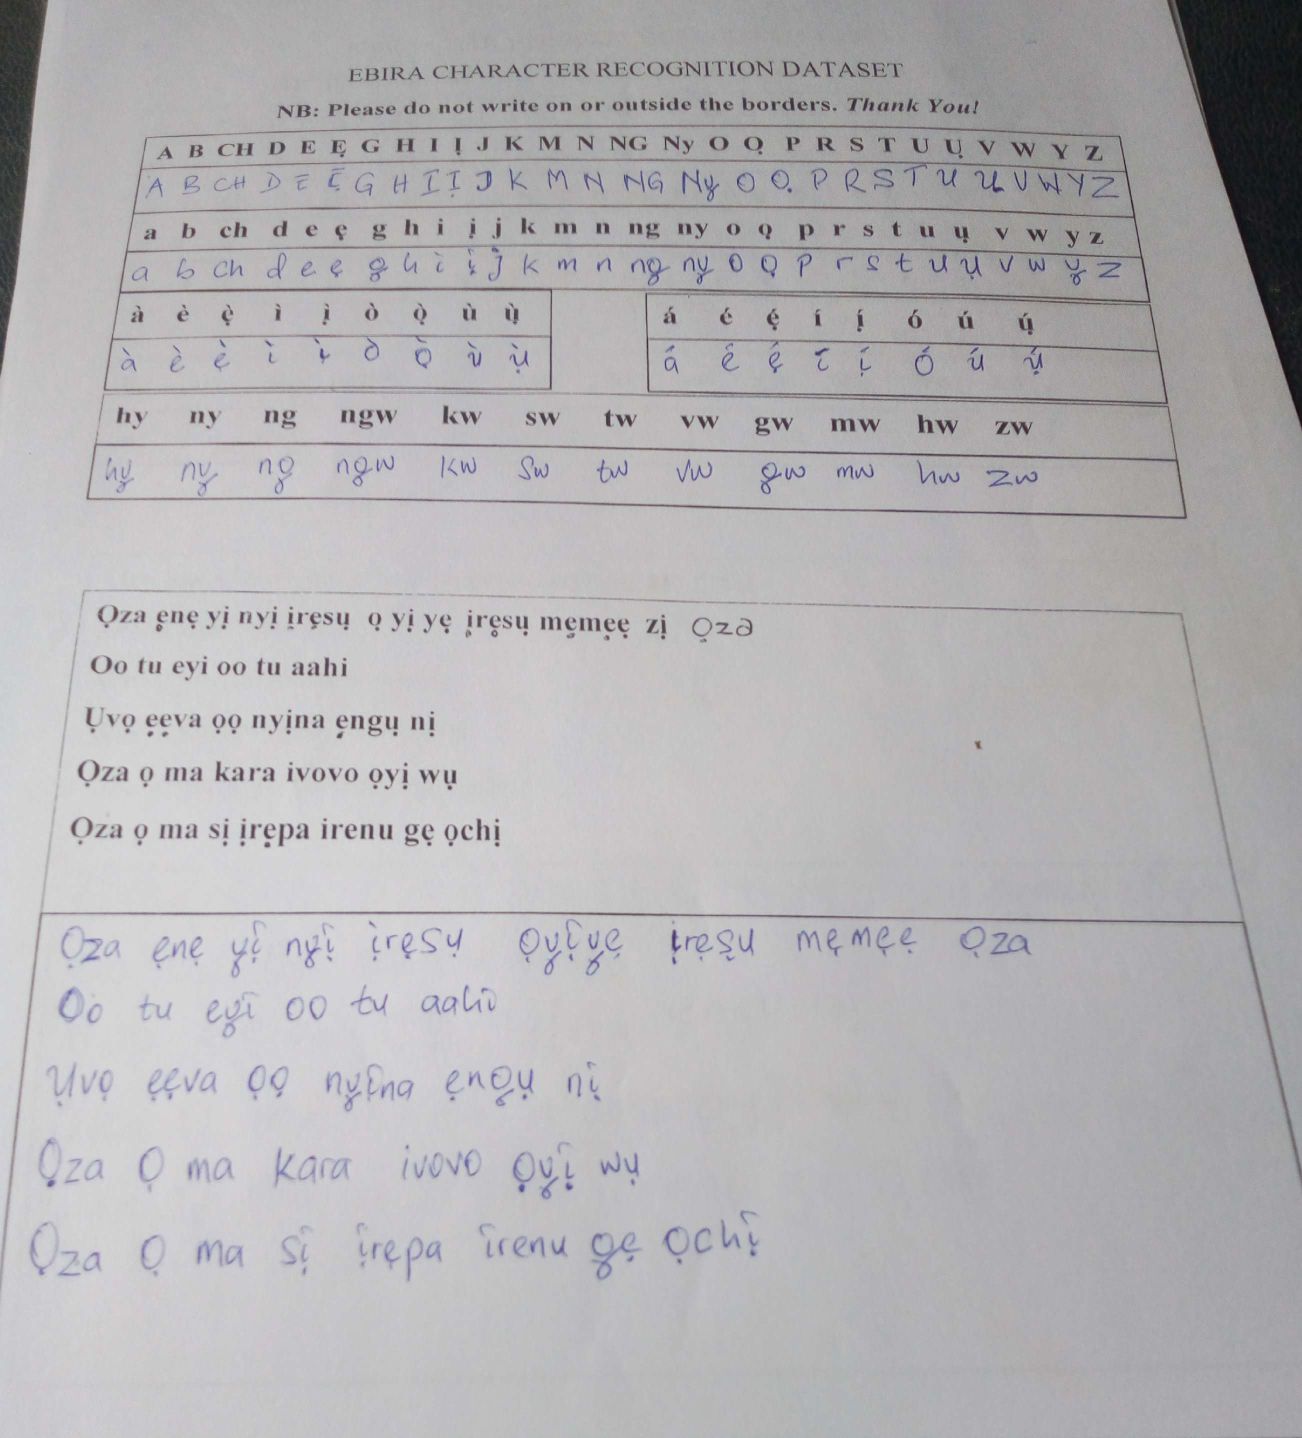 EBIRA CHARACTER RECOGNITION DATASET
NB: Please do not write on or outside the borders. Thank You!
A B CH D E Ẹ G H I Ị J K M N NG Ny O Ọ P R S T U Ụ V W Y Z
A B CH D E Ẹ G H I Ị J K M N NG Ny O Ọ P R S T U Ụ V W Y Z
a b ch d e ẹ g h i ị j k m n ng ny o ọ p r s t u ụ v w y z
a b ch d e ẹ g h i ị j k m n ng ny o ọ p r s t u ụ v w y z
à è ẹ̀ ì ị̀ ò ọ̀ ù ụ̀ á é ẹ́ í ị́ ó ú ụ́
à è ẹ̀ ì ị̀ ò ọ̀ ù ụ̀ á é ẹ́ í ị́ ó ú ụ́
hy ny ng ngw kw sw tw vw gw mw hw zw
hy ny ng ngw kw sw tw vw gw mw hw zw
Ọza ẹnẹ yị nyị ịrẹsụ ọ yị yẹ ịrẹsụ mẹmẹẹ zị Ọza
Oo tu eyi oo tu aahi
Ụvọ ẹẹva ọọ nyịna ẹngụ nị
Ọza ọ ma kara ivovo ọyị wụ
Ọza ọ ma sị ịrẹpa irenu gẹ ọchị
Ọza ẹnẹ yị nyị ịrẹsụ ọyịyẹ ịrẹsụ mẹmẹẹ Ọza
Oo tu eyi oo tu aahi
Ụvọ ẹẹva ọọ nyịna ẹngụ nị
Ọza Ọ ma kara ivovo ọyị wụ
Ọza Ọ ma sị ịrẹpa irenu gẹ ọchị